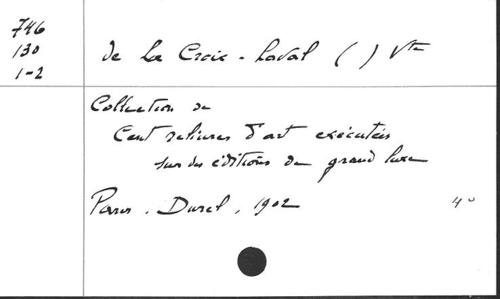 746
130
1-2
de La Croix-Laval ( ) Vte
Collection de
Cent reliures d'art exécutées
sur des éditions de grand luxe
Paris. Durel, 1902
4°